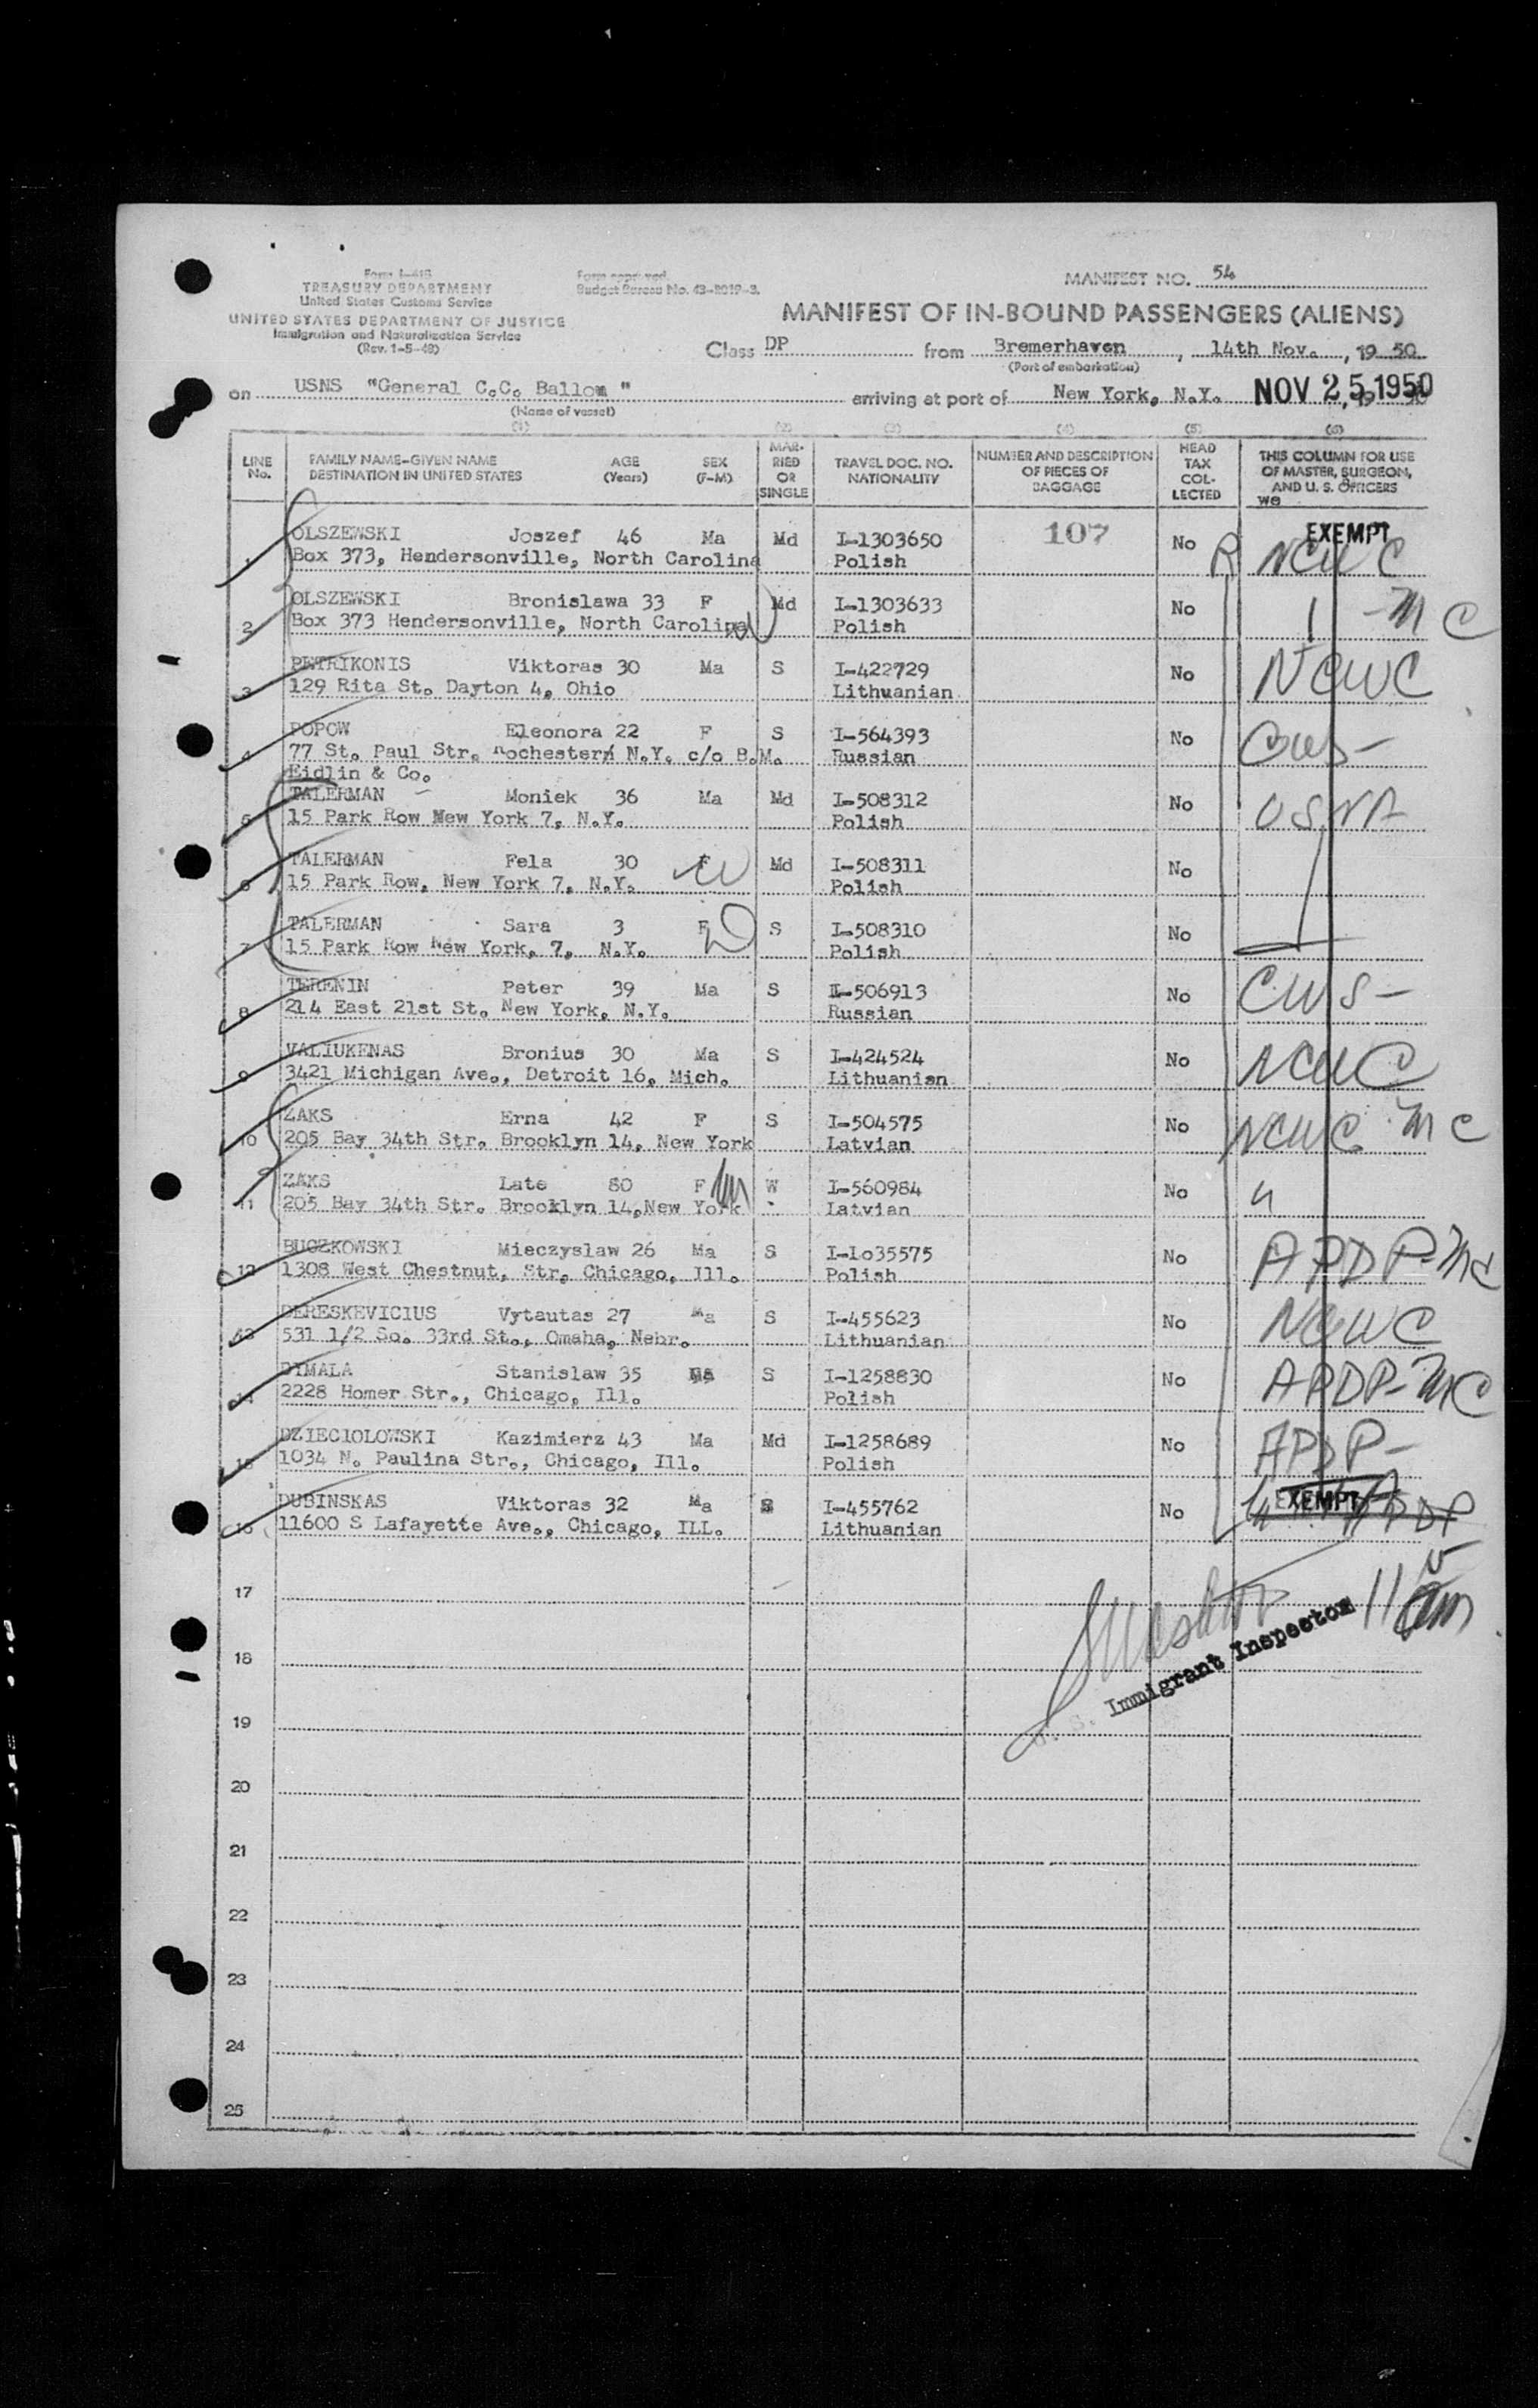 Form I-415
TREASURY DEPARTMENT
United States Customs Service
UNITED STATES DEPARTMENT OF JUSTICE
Immigration and Naturalization Service
(Rev. 1-5-48)
Form approved.
Budget Bureau No. 43-R019-3.
MANIFEST NO. 54
MANIFEST OF IN-BOUND PASSENGERS (ALIENS)
Class DP from Bremerhaven, 14th Nov., 1950
(Port of embarkation)
on USNS "General C.C. Ballou" arriving at port of New York, N.Y. NOV 25 1950
(Name of vessel)
(1) (2) (3) (4) (5) (6)
LINE No.
FAMILY NAME-GIVEN NAME DESTINATION IN UNITED STATES
AGE (Years)
SEX (F-M)
MARRIED OR SINGLE
TRAVEL DOC. NO. NATIONALITY
NUMBER AND DESCRIPTION OF PIECES OF BAGGAGE
HEAD TAX COLLECTED
THIS COLUMN FOR USE OF MASTER, SURGEON, AND U. S. OFFICERS
1 OLSZEWSKI Joszef 46 Ma Md I-1303650 107 No EXEMPT
Box 373, Hendersonville, North Carolina Polish NCWC
2 OLSZEWSKI Bronislawa 33 F Md I-1303633 No
Box 373 Hendersonville, North Carolina Polish - MC
3 PETRIKONIS Viktoras 30 Ma S I-422729 No NCWC
129 Rita St. Dayton 4, Ohio Lithuanian
4 POPOW Eleonora 22 F S I-564393 No CWS-
77 St. Paul Str. Rochester N.Y. c/o B.M. Russian
Eidlin & Co.
5 TALERMAN Moniek 36 Ma Md I-508312 No USNA
15 Park Row New York 7, N.Y. Polish
6 TALERMAN Fela 30 F Md I-508311 No
15 Park Row, New York 7, N.Y. Polish
7 TALERMAN Sara 3 F S I-508310 No
15 Park Row New York, 7, N.Y. Polish
8 TERENIN Peter 39 Ma S I-506913 No CWS-
214 East 21st St. New York, N.Y. Russian
9 VALIUKENAS Bronius 30 Ma S I-424524 No NCWC
3421 Michigan Ave., Detroit 16, Mich. Lithuanian
10 ZAKS Erna 42 F S I-504575 No NCWC MC
205 Bay 34th Str. Brooklyn 14, New York Latvian
11 ZAKS Late 80 F W I-560984 No "
205 Bay 34th Str. Brooklyn 14,New York Latvian
12 BUCZKOWSKI Mieczyslaw 26 Ma S I-1o35575 No APDP-MC
1308 West Chestnut, Str. Chicago, Ill. Polish
13 DERESKEVICIUS Vytautas 27 Ma S I-455623 No NCWC
531 1/2 So. 33rd St., Omaha, Nebr. Lithuanian
14 DYMALA Stanislaw 35 Ma S I-1258830 No APDP-MC
2228 Homer Str., Chicago, Ill. Polish
15 DZIECIOLOWSKI Kazimierz 43 Ma Md I-1258689 No APDP-
1034 N. Paulina Str., Chicago, Ill. Polish
16 DUBINSKAS Viktoras 32 Ma S I-455762 No EXEMPT APDP
11600 S Lafayette Ave., Chicago, ILL. Lithuanian
17
Immigrant Inspector
11 am
18
19
20
21
22
23
24
25